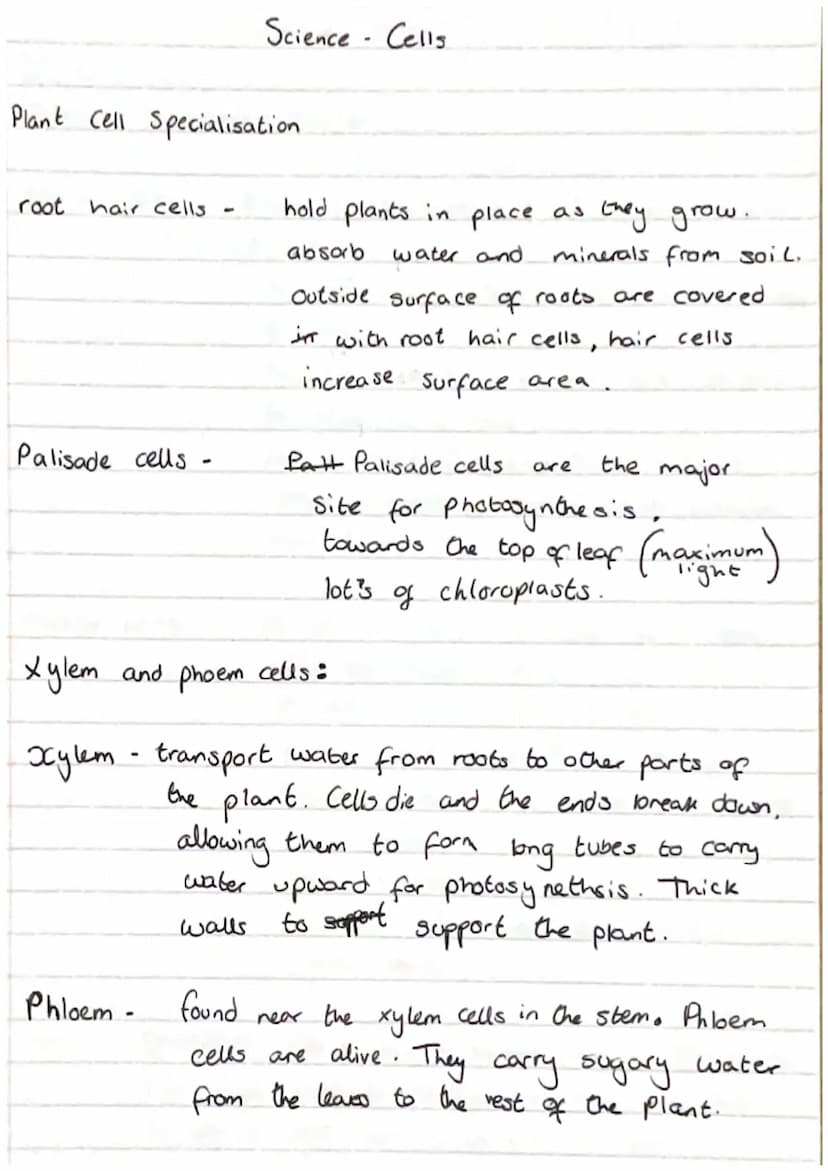 Science - Cells
Plant Cell Specialisation
root hair cells - hold plants in place as they grow.
absorb water and minerals from soil.
Outside surface of roots are covered
in with root hair cells, hair cells
increase surface area.
Palisade cells - Pall Palisade cells are the major
site for photosynthesis.
towards the top of leaf (maximum
light)
lot's of chloroplasts.
Xylem and phoem cells:
Xylem - transport water from roots to other parts of
the plant. Cells die and the ends break down,
allowing them to form long tubes to carry
water upward for photosynethsis. Thick
walls to support support the plant.
Phloem - found near the xylem cells in the stem. Phloem
cells are alive. They carry sugary water
from the leaves to the rest of the plant.